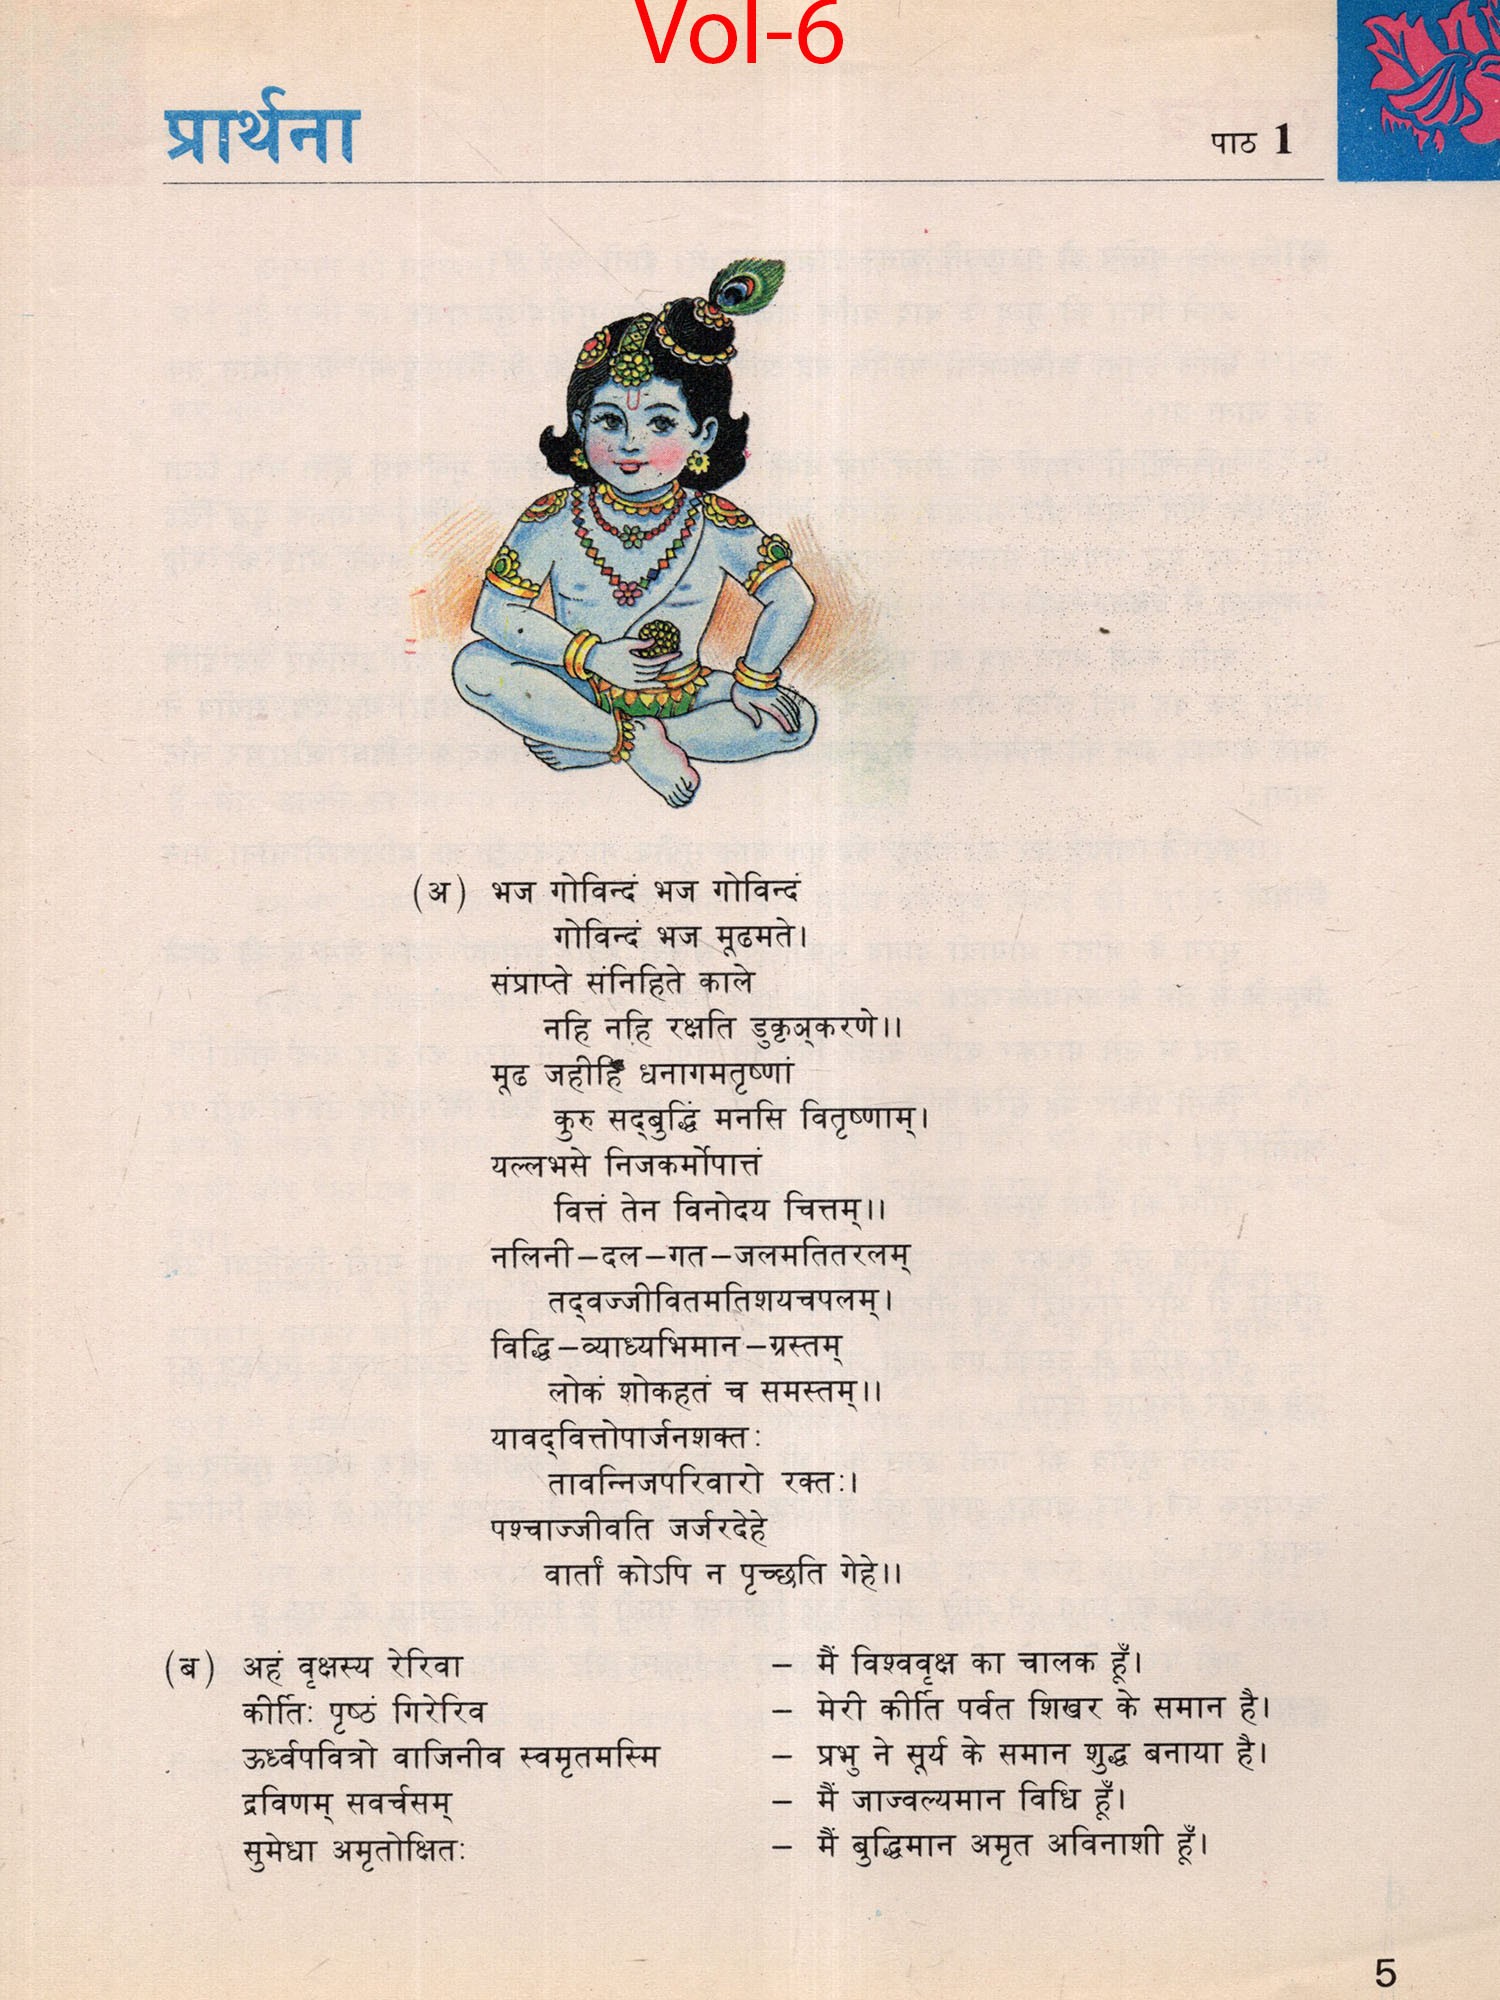 Vol-6
प्रार्थना
पाठ 1
(अ) भज गोविन्दं भज गोविन्दं
गोविन्दं भज मूढमते।
संप्राप्ते संनिहिते काले
नहि नहि रक्षति डुकृञ्करणे।।
मूढ जहीहि धनागमतृष्णां
कुरु सद्बुद्धिं मनसि वितृष्णाम्।
यल्लभसे निजकर्मोपात्तं
वित्तं तेन विनोदय चित्तम्।।
नलिनी–दल–गत–जलमतितरलम्
तद्वज्जीवितमतिशयचपलम्।
विद्धि–व्याध्यभिमान–ग्रस्तम्
लोकं शोकहतं च समस्तम्।।
यावद्वित्तोपार्जनशक्तः
तावन्निजपरिवारो रक्तः।
पश्चाज्जीवति जर्जरदेहे
वार्तां कोऽपि न पृच्छति गेहे।।
(ब) अहं वृक्षस्य रेरिवा – मैं विश्ववृक्ष का चालक हूँ।
कीर्तिः पृष्ठं गिरेरिव – मेरी कीर्ति पर्वत शिखर के समान है।
ऊर्ध्वपवित्रो वाजिनीव स्वमृतमस्मि – प्रभु ने सूर्य के समान शुद्ध बनाया है।
द्रविणम् सवर्चसम् – मैं जाज्वल्यमान विधि हूँ।
सुमेधा अमृतोक्षितः – मैं बुद्धिमान अमृत अविनाशी हूँ।
5